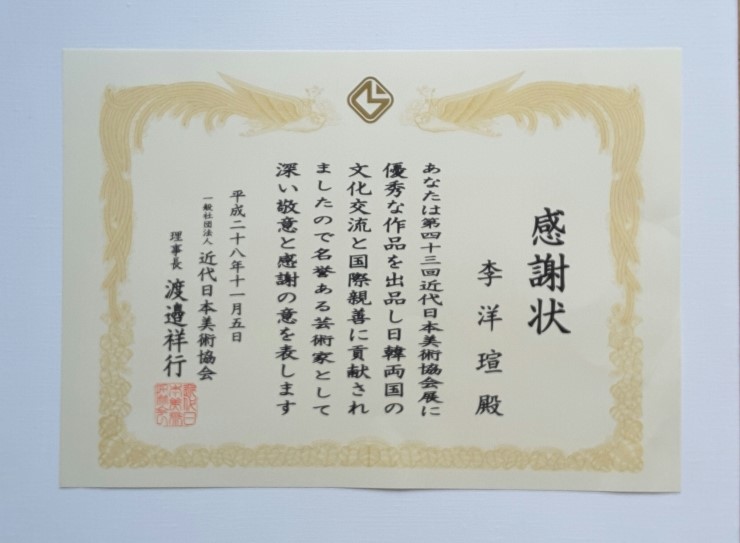 感謝状
李洋瑄殿
あなたは第四十三回近代日本美術協会展に
優秀な作品を出品し日韓両国の
文化交流と国際親善に貢献され
ましたので名誉ある芸術家として
深い敬意と感謝の意を表します
平成二十八年十一月五日
一般社団法人 近代日本美術協会
理事長 渡邉祥行